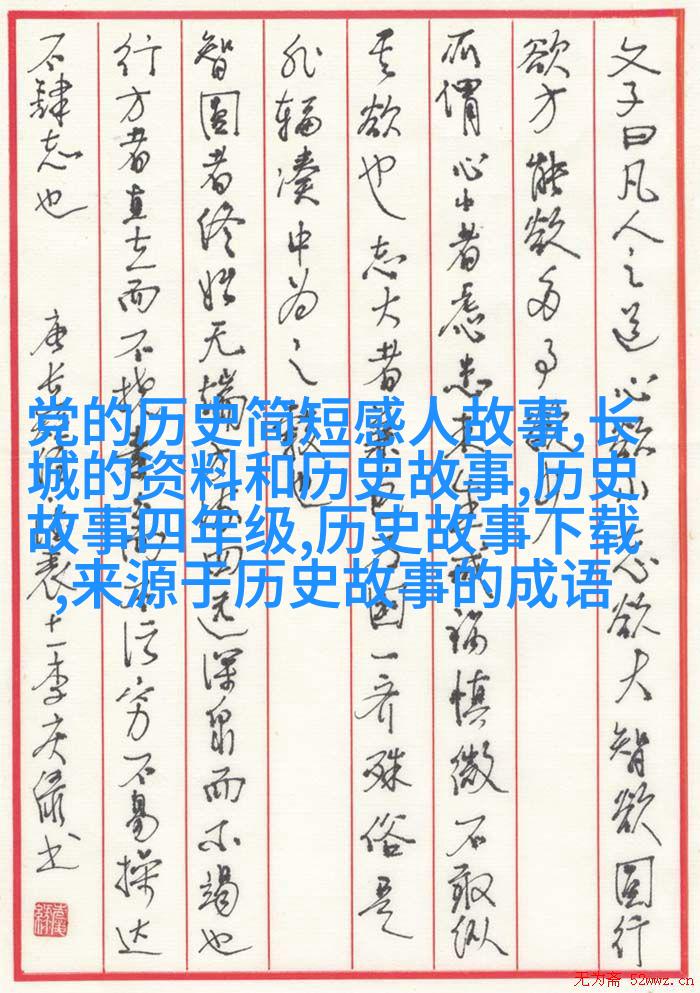 文子曰凡人之道心欲小志欲大智欲圆行
欲方能欲多事欲少
所谓心小者虑患未生戒祸慎微不敢纵
其欲也志大者兼包万国一齐殊俗是
非辐凑中为之毂也
智圆者终始无端方流四远深泉而不竭也
行方者直立而不挠素白而不污穷不易操达
不肆志也
党的历史简短感人故事,长
城的资料和历史故事,历史
故事四年级,历史故事下载
,来源于历史故事的成语
无为斋 52wwz.cn